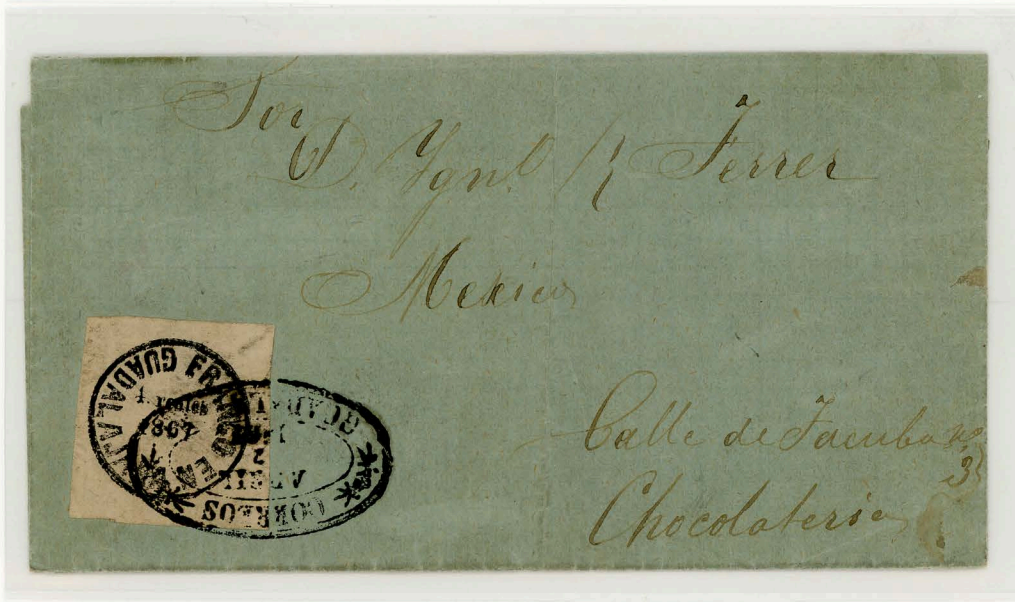 Sor
D. Ygnº R Ferrer
Mexico
Calle de Tacuba no
3
Chocolateria
FRANCO EN GUADALAJARA
186
CORREOS
GUADALAJARA
ABRIL
2